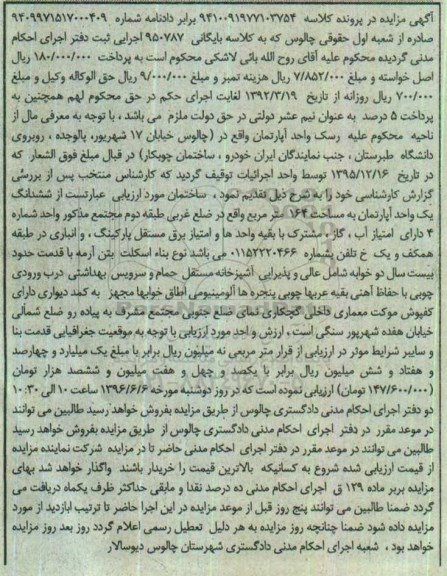 آگهی مزایده در پرونده کلاسه ۹۴۱۰۰۹۱۹۷۷۱۰۳۷۵۴ برابر دادنامه شماره ۹۴۰۹۹۷۱۵۱۷۰۰۰۴۰۹
صادره از شعبه اول حقوقی چالوس که به کلاسه بایگانی ۹۵۰۷۸۷ اجرایی ثبت دفتر اجرای احکام
مدنی گردیده محکوم علیه آقای روح الله بائی لاشکی محکوم است به پرداخت ۱۸۰/۰۰۰/۰۰۰ ریال
اصل خواسته و مبلغ ۷/۸۵۲/۰۰۰ ریال هزینه تمبر و مبلغ ۹/۰۰۰/۰۰۰ ریال حق الوکاله وکیل و مبلغ
۷۰۰/۰۰۰ ریال روزانه از تاریخ ۱۳۹۲/۳/۱۹ لغایت اجرای حکم در حق محکوم لهم همچنین به
پرداخت ۵ درصد به عنوان نیم عشر دولتی در حق دولت ملزم می باشد ، با توجه به معرفی مال از
ناحیه محکوم علیه رسک واحد آپارتمان واقع در (چالوس خیابان ۱۷ شهریور، پالوجده ، روبروی
دانشگاه طبرستان ، جنب نمایندگان ایران خودرو ، ساختمان چوبکار) در قبال مبلغ فوق الشعار که
در تاریخ ۱۳۹۵/۱۲/۱۶ توسط واحد اجرائیات توقیف گردید که کارشناس منتخب پس از بررسی
گزارش کارشناسی خود را به شرح ذیل تقدیم نمود ، ساختمان مورد ارزیابی عبارتست از ششدانگ
یک واحد آپارتمان به مساحت ۱۶۴ متر مربع واقع در ضلع غربی طبقه دوم مجتمع مذکور واحد شماره
۴ دارای امتیاز آب ، گاز ، مشترک با بقیه واحد ها و امتیاز برق مستقل پارکینگ ، و انباری در طبقه
همکف و یک خ تلفن بشماره ۰۱۱۵۲۲۲۰۴۶۶ می باشد نوع بناء اسکلت بتن آرمه با قدمت حدود
بیست سال دو خوابه شامل عالی و پذیرایی آشپزخانه مستقل حمام و سرویس بهداشتی درب ورودی
چوبی با حفاظ آهنی بقیه عربها چوبی پنجره ها آلومینیومی اطاق خوابها مجهز به کمد دیواری دارای
کفپوش موکت معماری داخلی گچکاری نمای ضلع جنوبی مجتمع مشرف به پیاده رو ضلع شمالی
خیابان هفده شهریور سنگی است ، ارزش و احد مورد ارزیابی با توجه به موقعیت جغرافیایی قدمت بنا
و سایبر شرایط موثر در ارزیابی از قرار متر مربعی نه میلیون ریال برابر با مبلغ یک میلیارد و چهارصد
و هفتاد و شش میلیون ریال برابر با یکصد و چهل و هفت میلیون و ششصد هزار تومان
(۱۴۷/۶۰۰/۰۰۰ تومان) ارزیابی نموده است که در روز دوشنبه مورخه ۱۳۹۶/۶/۶ ساعت ۱۰ الی ۱۰:۳۰
دو دفتر اجرای احکام مدنی دادگستری چالوس از طریق مزایده بفروش خواهد رسید طالبین می توانند
در موعد مقرر در دفتر اجرای احکام مدنی دادگستری چالوس از طریق مزایده بفروش خواهد رسید
طالبین می توانند در موعد مقرر در دفتر اجرای احکام مدنی حاضر تا در مزایده شرکت نماینده مزایده
از قیمت ارزیابی شده شروع به کسانیکه بالاترین قیمت را خریدار باشند واگذار خواهد شد بهای
مزایده بربر ماده ۱۲۹ ق اجرای احکام مدنی ده درصد نقدا و مابقی حداکثر ظرف یکماه دریافت می
گردد ضمنا طالبین می توانند پنج روز قبل از موعد مزایده در این اجرا حاضر تا ترتیب ابازدید از مورد
مزایده داده شود ضمنا چنانچه روز مزایده به هر دلیل تعطیل رسمی اعلام گردد روز بعد روز مزایده
خواهد بود ، شعبه اجرای احکام مدنی دادگستری شهرستان چالوس دیوسالار